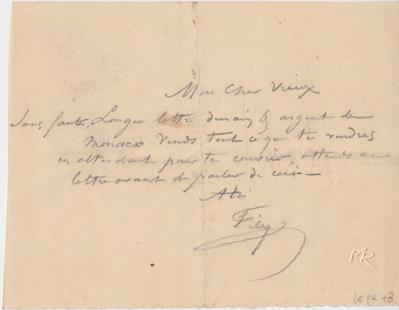 Mon Cher Vieux
Sans faute, Longue lettre demain & argent de
Monaco Vends tout ce que tu voudras
en attendant pour te couvrir, attends ma
lettre avant de parler de
A toi
MR